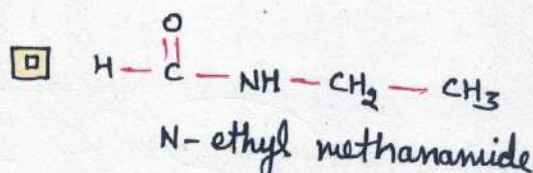 O
H - C - NH - CH2 - CH3
N-ethyl methanamide